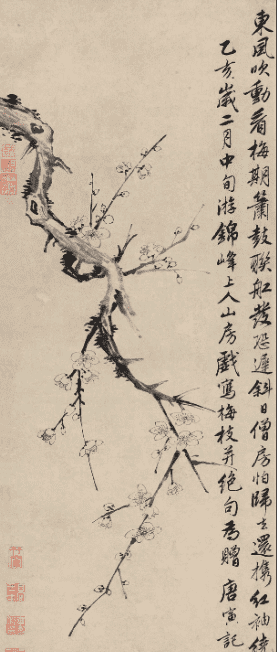 東風吹動看梅期簫鼓聯船發恐遲斜日僧房怕歸去還攜紅袖繞
乙亥歲二月中旬游錦峰上人山房戲寫梅枝并絕句為贈 唐寅記